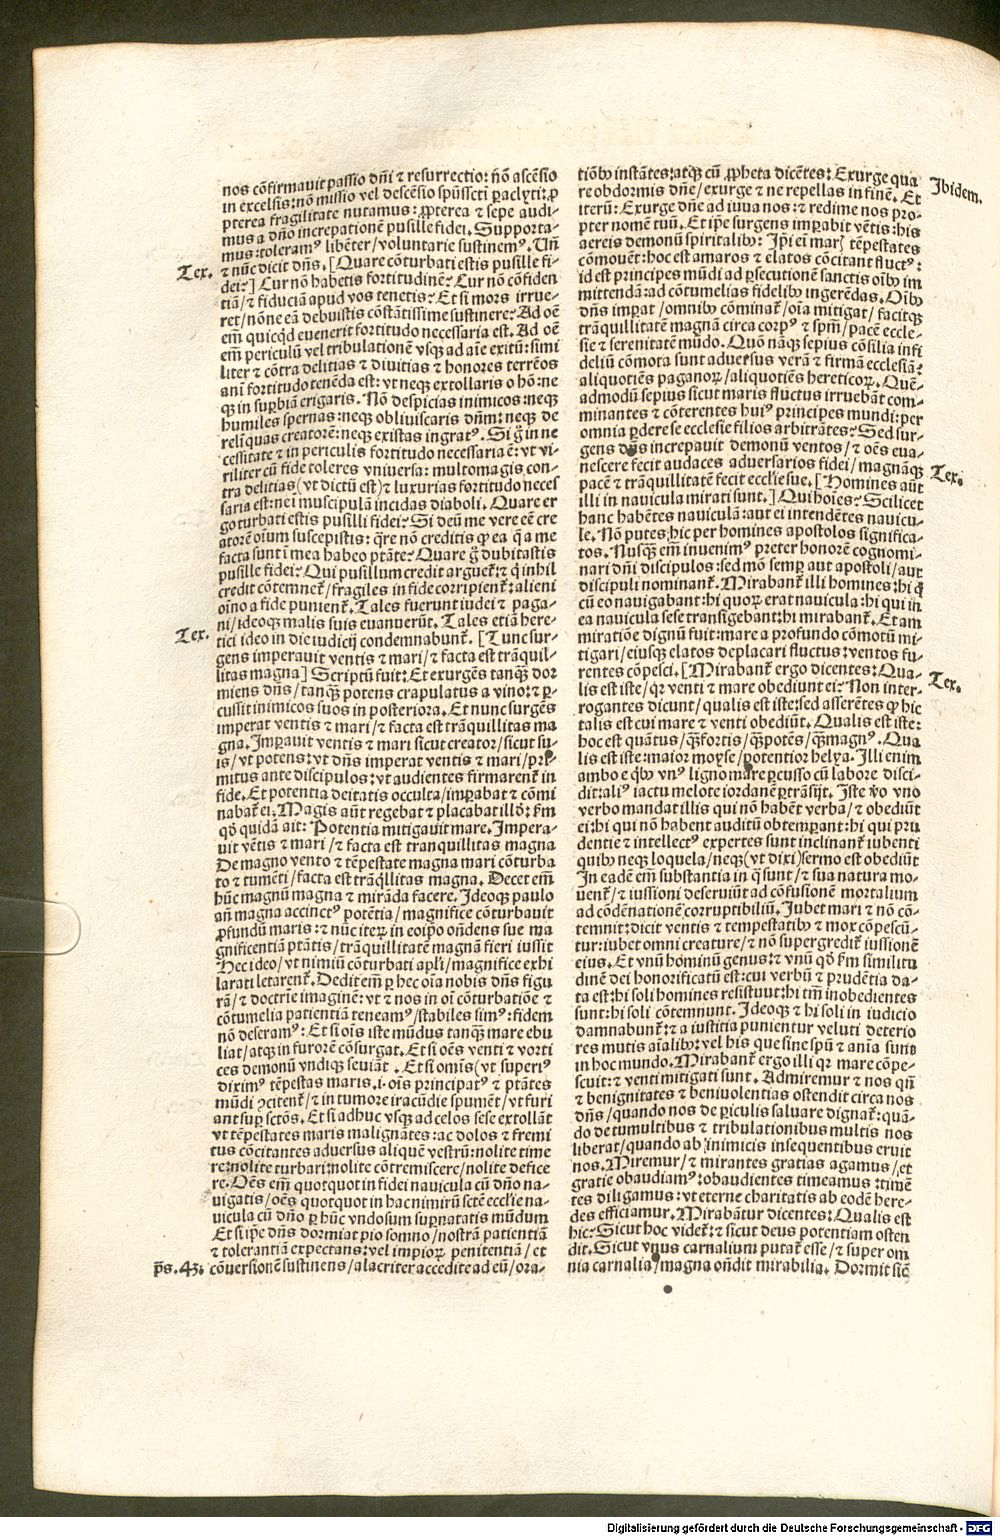 nos cõfirmauit passio dñi ⁊ resurrectio: nõ ascẽsio
in excelsis: nõ missio vel descẽsio spũssctĩ paclyti: ꝓ
pterea fragilitate nutamus: ꝓpterea ⁊ sepe audi-
mus a dño increpationẽ pusille fidei. Supporta-
mus: toleramꝰ libẽter/voluntarie sustinemꝰ. Uñ
Tex.
⁊ nũc dicit dñs. [Quare cõturbati estis pusille fi-
dei?] Cur nõ habetis fortitudinẽ? Cur nõ cõfiden
tiã/⁊ fiduciã apud vos tenetis? Et si mors irrue-
ret/nõne eã debuistis cõstãtissime sustinere? Ad oẽ
em̃ quicqd euenerit fortitudo necessaria est. Ad oẽ
em̃ periculũ vel tribulationẽ vsqꝫ ad aĩe exitũ: simi
liter ⁊ cõtra delitias ⁊ diuitias ⁊ honores terrẽos
anĩ fortitudo tenẽda est: vt neqꝫ extollaris o hõ: ne
qꝫ in suꝑbiã erigaris. Nõ despicias inimicos: neqꝫ
humiles spernas: neqꝫ obliuiscaris dñm: neqꝫ de
relĩquas creatorẽ: neqꝫ existas ingratꝰ. Si g̃ in ne
cessitate ⁊ in periculis fortitudo necessaria ẽ: vt vi-
riliter cũ fide toleres vniuersa: multomagis con-
tra delitias (vt dictũ est) ⁊ luxurias fortitudo neces
saria est: nei muscipulã incidas diaboli. Quare er
go turbati estis pusilli fidei? Si deũ me vere eẽ cre
atorẽ oĩum suscepistis: qre nõ creditis ꝙ ea q̃ a me
facta sunt ĩ mea habeo ptãte? Quare g̃ dubitastis
pusille fidei? Qui pusillum credit arguet̃: ⁊ q̃ inhil
credit cõtemnet̃/fragiles in fide corripient̃: alieni
oĩno a fide punient̃. Tales fuerunt iudei ⁊ paga-
ni/ideoqꝫ malis suis euanuerũt. Tales etiã here-
Tex.
tici ideo in die iudicij condemnabunt̃. [Tunc sur-
gens imperauit ventis ⁊ mari/⁊ facta est trãquil-
litas magna] Scriptũ fuit: Et exurgẽs tanqꝫ dor
miens dñs/tanqꝫ potens crapulatus a vino: ⁊ ꝑ-
cussit inimicos suos in posteriora. Et nunc surgẽs
imperat ventis ⁊ mari/⁊ facta est trãquillitas ma
gna. Imꝑauit ventis ⁊ mari sicut creator/sicut su-
is/vt potens: vt dñs imperat ventis ⁊ mari/pri-
mitus ante discipulos: vt audientes firmarent̃ in
fide. Et potentia deitatis occulta/imꝑabat ⁊ cõmi
nabat̃ ei. Magis aũt regebat ⁊ placabat illõs: fm
qõ quidã ait: Potentia mitigauit mare. Impera-
uit vẽtis ⁊ mari/⁊ facta est tranquillitas magna
De magno vento ⁊ tẽpestate magna mari cõturba
to ⁊ tumẽti/facta est trãqllitas magna. Decet em̃
hũc magnũ magna ⁊ mirãda facere. Ideoqꝫ paulo
añ magna accinctꝰ potẽtia/magnifice cõturbauit
ꝓfundũ maris: ⁊ nũc iteꝝ in eoip̃o oñdens sue ma
gnificentiã ptãtis/trãquillitatẽ magnã fieri iussit
Hec ideo/vt nimiũ cõturbati apl̃i/magnifice exhi
larati letarent̃. Dedit em̃ ꝑ hec oĩa nobis dñs figu
rã/⁊ doctrĩe imaginẽ: vt ⁊ nos in oĩ cõturbatiõe ⁊
cõtumelia patientiã teneamꝰ/stabiles simꝰ: fidem
nõ deseramꝰ: Et si oĩs iste mũdus tanqꝫ mare ebu
liat/atqꝫ in furorẽ cõsurgat. Et si oẽs venti ⁊ vorti
ces demonũ vndiqꝫ seuiãt. Et si omĩs (vt superiꝰ
diximꝰ tẽpestas maris. i. oĩs principatꝰ ⁊ ptãtes
mũdi ꝯcitent̃/⁊ in tumore iracũdie spumẽt/vt furi
ant suꝑ sctõs. Et si adhuc vsqꝫ ad celos sese extollãt
vt tẽpestates maris malignãtes: ac dolos ⁊ fremi
tus cõcitantes aduersus aliquẽ vestrũ: nolite time
re: nolite turbari: nolite cõtremiscere/nolite defice
re. Oẽs em̃ quotquot in fidei nauicula cũ dño na-
uigatis/oẽs quotquot in hac nimirũ sctẽ eccl̃ie na-
uicula cũ dño ꝑ hũc vndosum suꝑnatatis mũdum
Et si ip̃e dñs dormiat pio somno/nostrã patientiã
⁊ tolerantiã expectans: vel impioꝝ penitentiã/et
p̃s. 43.
cõuersionẽ sustinens/alacriter accedite ad eũ/ora-
tiõibꝰ instãtes: atqꝫ cũ ꝓpheta dicẽtes: Exurge qua
Ibidem.
re obdormis dñe/exurge ⁊ ne repellas in finẽ. Et
iterũ: Exurge dñe adiuua nos: ⁊ redime nos pro-
pter nomẽ tuũ. Et ip̃e surgens imꝑabit vẽtis: his
aereis demonũ spiritalibꝰ: Ip̃i eĩ marꝭ tẽpestates
cõmouẽt: hoc est amaros ⁊ elatos cõcitant fluctꝰ:
id est principes mũdi ad ꝑsecutionẽ sanctis oĩbꝰ im
mittendã: ad cõtumelias fidelibꝰ ingerẽdas. Oĩbꝰ
dñs imꝑat/omnibꝰ cõminat̃/oĩa mitigat/facitqꝫ
trãquillitatẽ magnã circa corpꝰ ⁊ spm̃/pacẽ eccle-
sie ⁊ serenitatẽ mũdo. Quõ nãqꝫ sepius cõsilia infi
deliũ cõmota sunt aduersus verã ⁊ firmã ecclesiã?
aliquotiẽs paganoꝝ/aliquotiẽs hereticoꝝ. Quẽ-
admodũ sepius sicut maris fluctus irruebãt com-
minantes ⁊ cõterentes huiꝰ principes mundi: per
omnia ꝑdere se ecclesie filios arbitrãtes? Sed sur-
gens dñs increpauit demonũ ventos/⁊ oẽs eua-
nescere fecit audaces aduersarios fidei/magnãqꝫ
Tex.
pacẽ ⁊ trãquillitatẽ fecit eccl̃ie sue. [Homines aũt
illi in nauicula mirati sunt.] Qui hoĩes? Scilicet
hanc habẽtes nauiculã: aut ei intendẽtes nauicu-
le. Nõ putes hic per homines apostolos significa-
tos. Nusqꝫ em̃ inuenimꝰ preter honorẽ cognomi-
nari dñi discipulos: sed mõ semꝑ aut apostoli/aut
discipuli nominant̃. Mirabant̃ illi homines: hi q̃
cũ eo nauigabant: hi quoꝝ erat nauicula: hi qui in
ea nauicula sese transigebant: hi mirabant̃. Et am
miratiõe dignũ fuit: mare a profundo cõmotũ mi-
tigari/eiusqꝫ elatos deplacari fluctus: ventos fu-
rentes cõpesci. [Mirabant̃ ergo dicentes: Qua-
Tex.
lis est iste/qꝛ venti ⁊ mare obediunt ei? Non inter-
rogantes dicunt/qualis est iste: sed asserẽtes ꝙ hic
talis est cui mare ⁊ venti obediũt. Qualis est iste:
hoc est quãtus/qꝫ fortis/qꝫ potẽs/qꝫ magnꝰ. Qua
lis est iste: maior moyse/potentior helya. Illi enim
ambo e qbꝰ vnꝰ ligno mare ꝑcusso cũ labore disci-
dit: aliꝰ iactu melote iordanẽ ꝑtrãsijt. Iste ṽo vno
verbo mandat illis qui nõ habẽt verba/⁊ obediũt
ei: hi qui nõ habent auditũ obtemꝑant: hi qui pru
dentie ⁊ intellectꝰ expertes sunt inclinant̃ iubenti
quibꝰ neqꝫ loquela/neqꝫ (vt dixi) sermo est obediũt
In eadẽ em̃ substantia in q̃ sunt/⁊ sua natura mo-
uent̃/⁊ iussioni deseruiũt ad cõfusionẽ mortalium
ad cõdẽnationẽ corruptibiliũ. Iubet mari ⁊ nõ cõ-
temnit: dicit ventis ⁊ tempestatibꝰ ⁊ mox cõpescũ-
tur: iubet omni creature/⁊ nõ supergredit̃ iussionẽ
eius. Et vnũ hominũ genus: ⁊ vnũ qõ fm similitu
dinẽ dei honorificatũ est: cui verbũ ⁊ prudẽtia da-
ta est: hi soli homines resistunt: hi tm̃ inobedientes
sunt: hi soli cõtemnunt. Ideoqꝫ ⁊ hi soli in iudicio
damnabunt̃: ⁊ a iustitia punientur veluti deterio
res mutis aĩalibꝰ: vel his que sine spũ ⁊ anĩa sunt
in hoc mundo. Mirabant̃ ergo illi qꝛ mare cõpe-
scuit: ⁊ venti mitigati sunt. Admiremur ⁊ nos qñ
⁊ benignitates ⁊ beniuolentias ostendit circa nos
dñs/quando nos de ꝑiculis saluare dignat̃: quã-
do de tumultibus ⁊ tribulationibus multis nos
liberat/quando ab inimicis insequentibus eruit
nos. Miremur/⁊ mirantes gratias agamus/et
gratie obaudiamꝰ: obaudientes timeamus: timẽ
tes diligamus: vt eterne charitatis ab eodẽ here-
des efficiamur. Mirabãtur dicentes: Qualis est
hic? Sicut hoc videt̃: ⁊ sicut deus potentiam osten
dit. Sicut vnus carnalium putat̃ esse/⁊ super om
nia carnalia/magna oñdit mirabilia. Dormit sicẽ
Digitalisierung gefördert durch die Deutsche Forschungsgemeinschaft - DFG